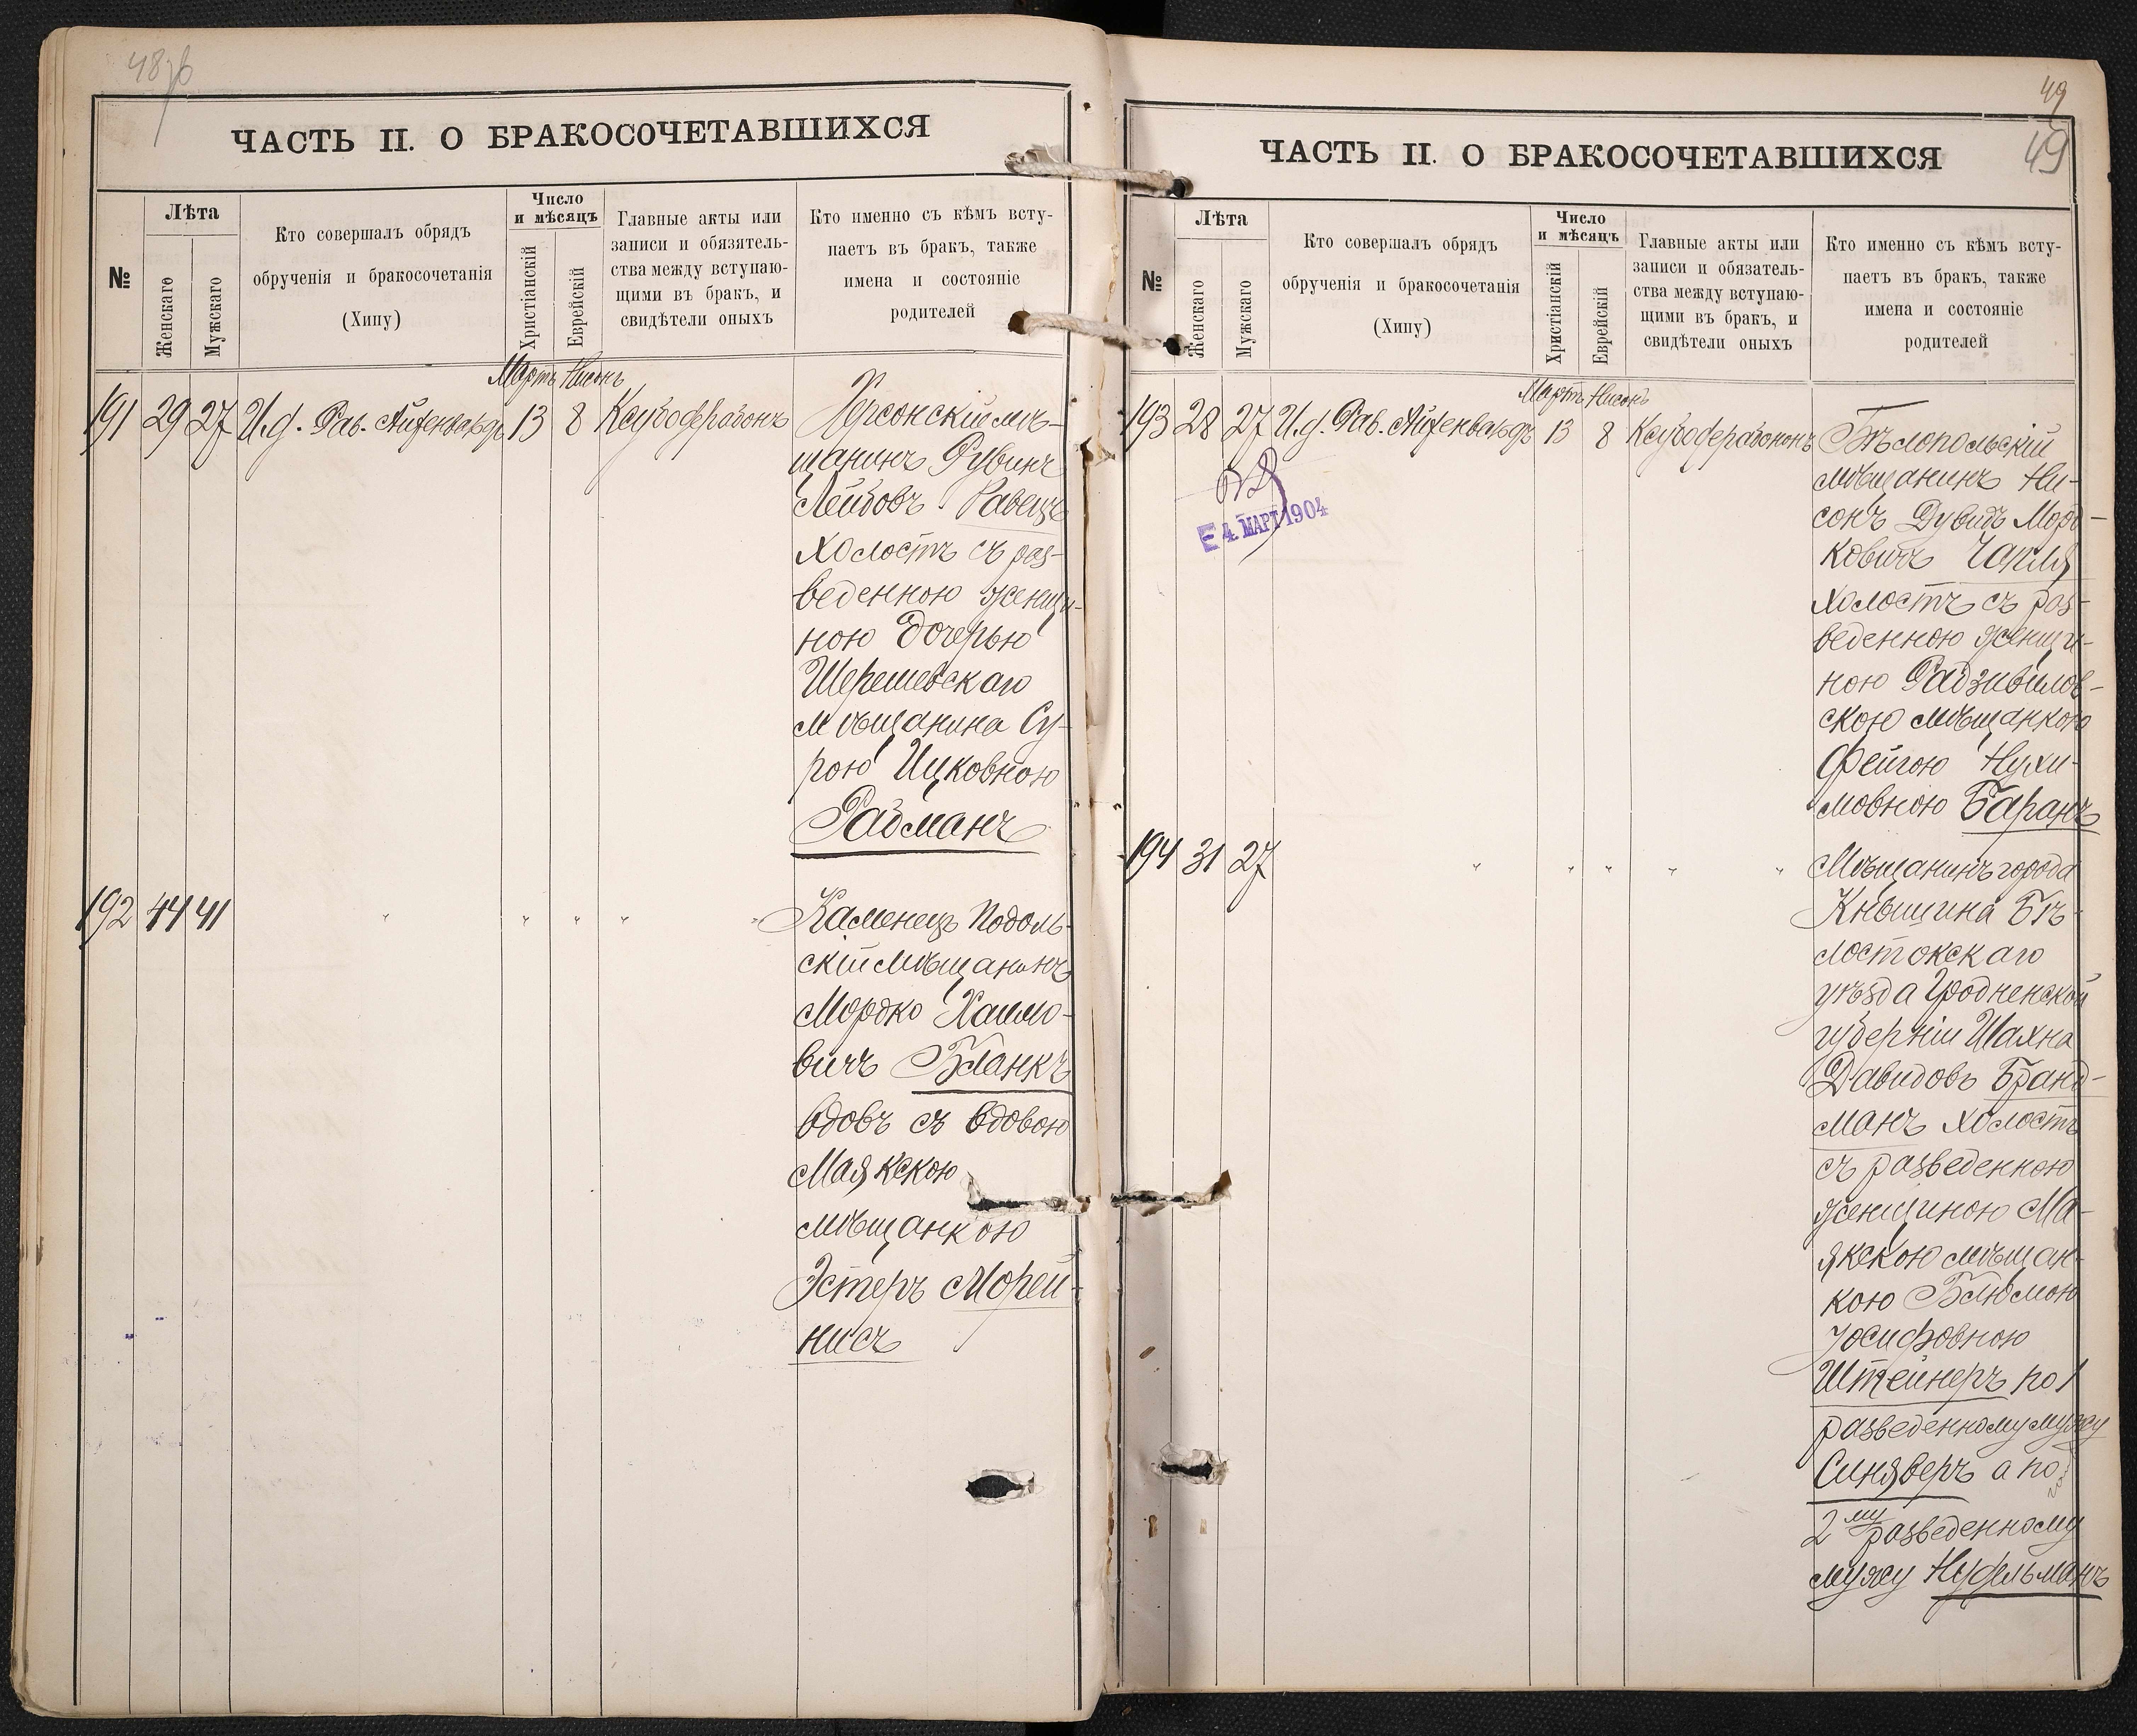 48
ЧАСТЬ II. О БРАКОСОЧЕТАВШИХСЯ
№
Лѣта
Женскаго
Мужскаго
Кто совершалъ обрядъ
обрученія и бракосочетанія
(Хипу)
Число
и мѣсяцъ
Христіанскій
Еврейскій
Главные акты или
записи и обязятель-
ства между вступаю-
щими въ бракъ, и
свидѣтели оныхъ
Кто именно съ кѣмъ всту-
паетъ въ бракъ, также
имена и состояніе
родителей
Мартъ Нисонъ
191 29 27 И.д. Рав. Айхенвальдъ 13 8
Херсонскій мѣ-
щанинъ Рувинъ
Лейбовъ Равецъ
холостъ съ раз-
веденною женщи-
ною дочерью
Шерешевскаго
мѣщанина Су-
рою Ицковною
Радманъ
192 44 41 " " " " "
Каменецъ Подоль-
скій мѣщанинъ
Мордко Хаимо-
вичъ Бланкъ
вдовъ съ вдовою
Маякскою
мѣщанкою
Эстеръ Морей-
нисъ
49
49
ЧАСТЬ II. О БРАКОСОЧЕТАВШИХСЯ
№
Лѣта
Женскаго
Мужскаго
Кто совершалъ обрядъ
обрученія и бракосочетанія
(Хипу)
Число
и мѣсяцъ
Христіанскій
Еврейскій
Главные акты или
записи и обязатель-
ства между вступаю-
щими въ бракъ, и
свидѣтели оныхъ
Кто именно съ кѣмъ всту-
паетъ въ бракъ, также
имена и состояніе
родителей
Мартъ Нисонъ
193 28 27 И.д. Рав. Айхенвальдъ 13 8
4 МАРТ 1904
Бѣлопольскій
мѣщанинъ Ни-
сонъ Дувидъ Морд-
ковичъ Чапля
холостъ съ раз-
веденною женщи-
ною Радзивилов-
скою мѣщанкою
Фейгою Нухи-
мовною Баранъ
194 31 27 " " " " "
Мѣщанинъ города
Кнышина Бѣ-
лостокскаго
уѣзда Гродненской
губерніи Шахна
Давидовъ Бранд-
манъ холостъ
съ разведенною
женщиною Ма-
якскою мѣщан-
кою Блюмою
Іосифовною
Штейнеръ по 1
разведенному мужу
Синяверъ а по
2му разведенному
мужу Нудельманъ